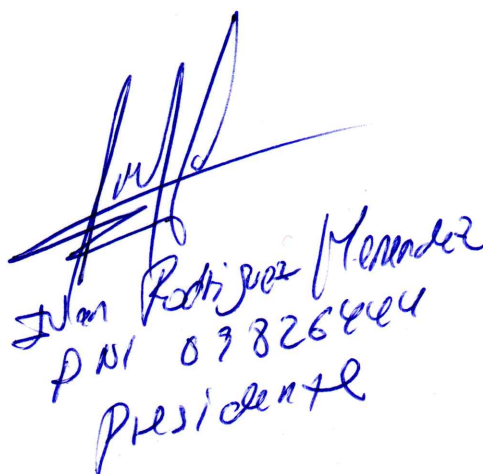 Juan Rodriguez Menendez
DNI 03826444
Presidente